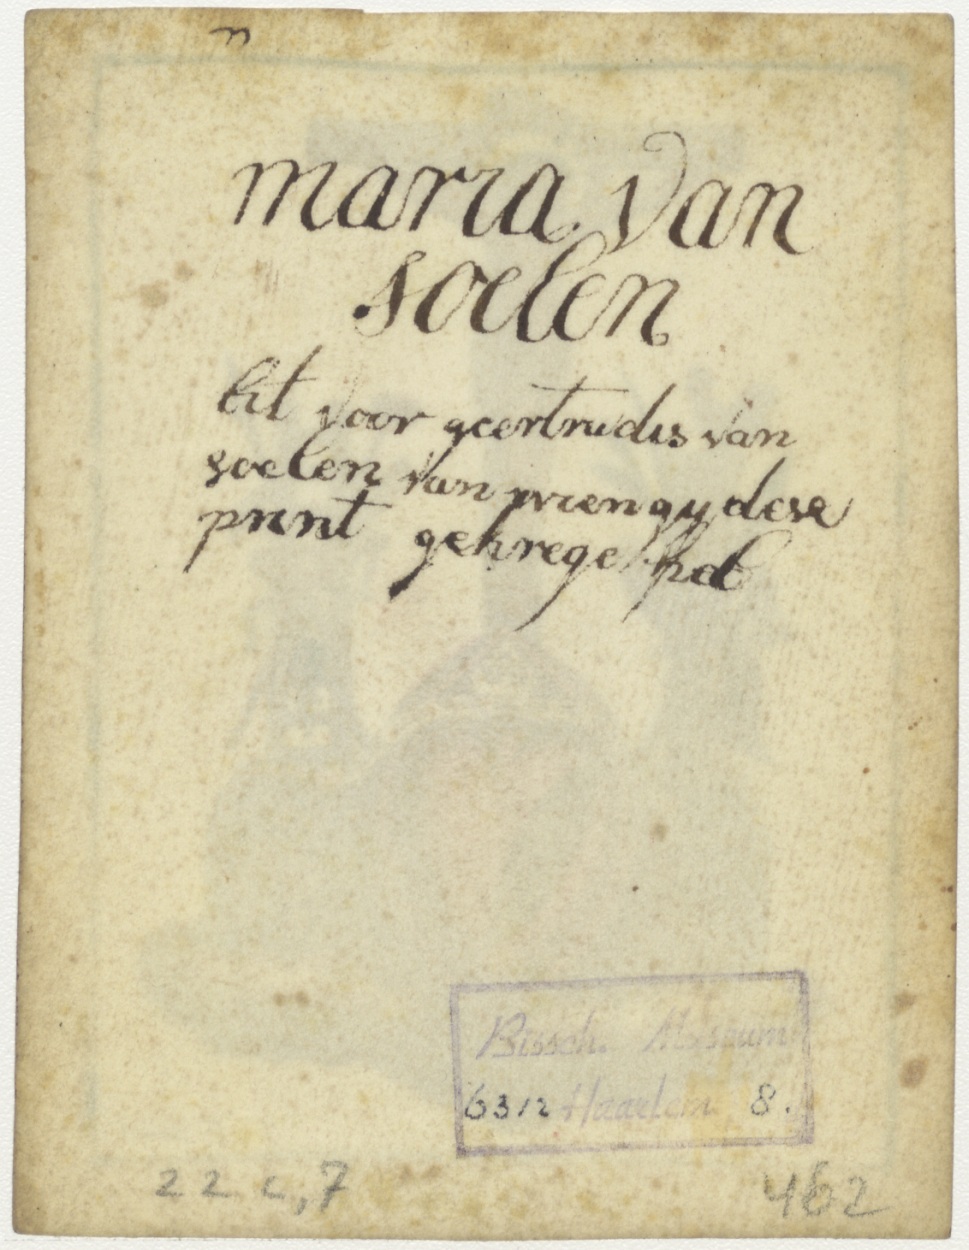 n
maria van
soelen
bit voor geertrudis van
soelen van wien gy dese
prent gekrege heb
Bissch. Museum
6312 Haarlem 8.
22 c,7
462